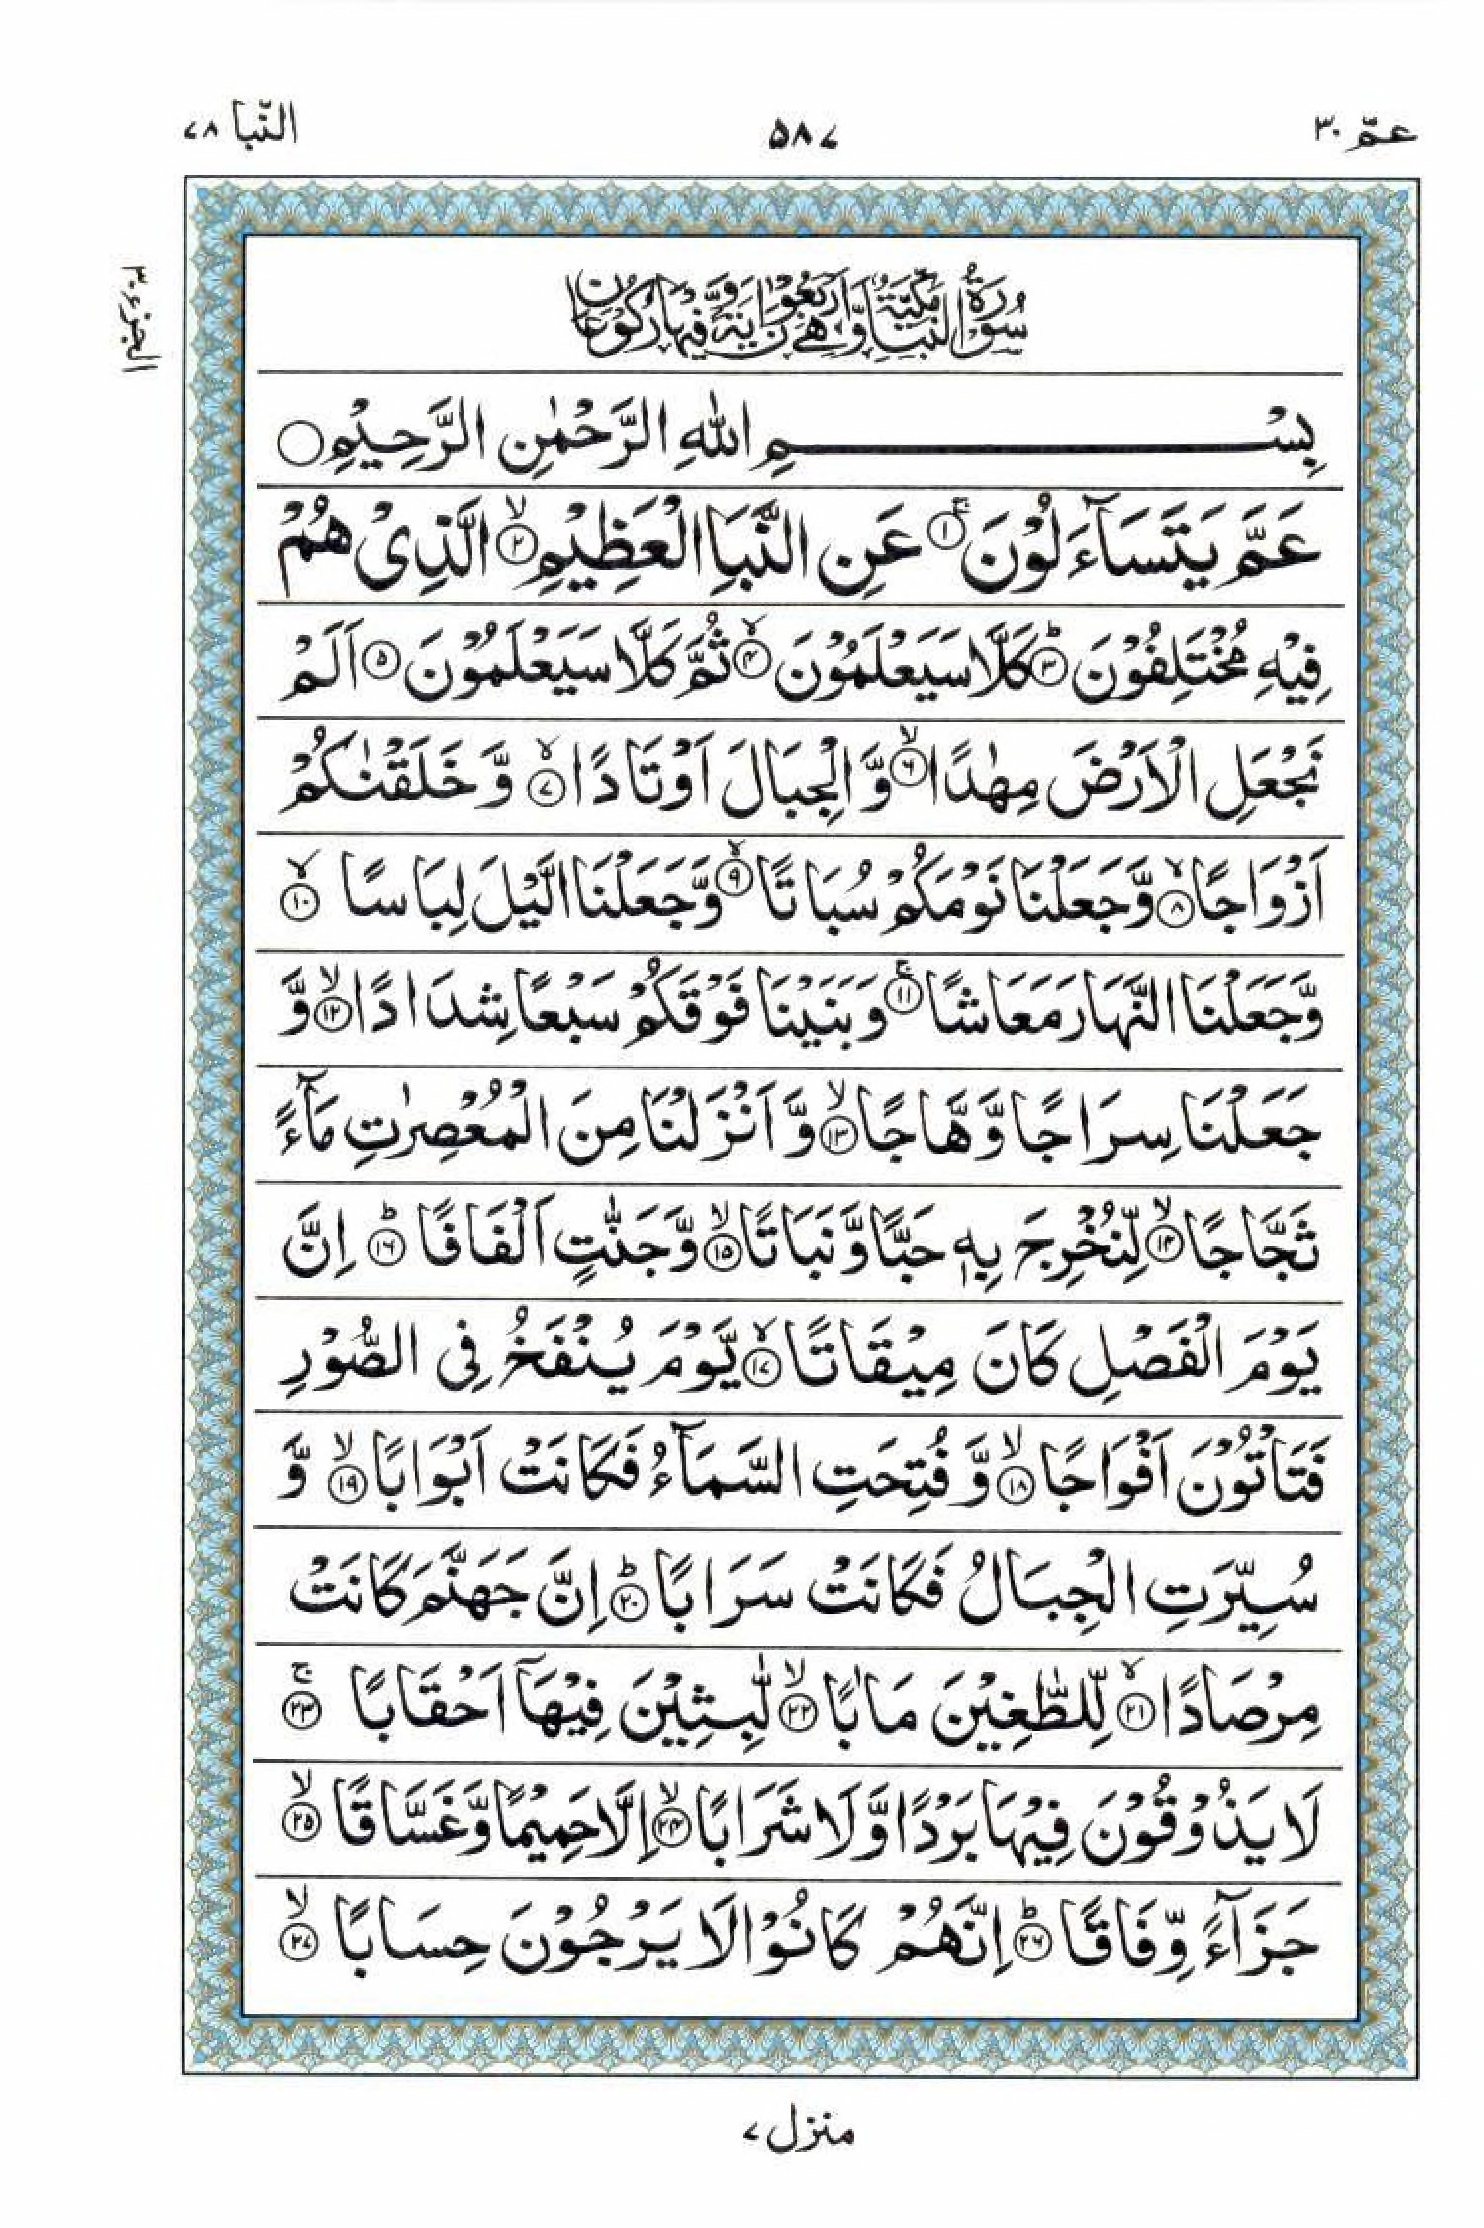 عمّ ۳۰
۵۸۷
النّبا ۷۸
الجزء ۳۰
سُوْرَةُ النَّبَاِ مَكِّيَّةٌ وَّهِيَ اَرْبَعُوْنَ اٰيَةً وَّفِيْهَا رُكُوْعَانِ
بِسْمِ اللّٰهِ الرَّحْمٰنِ الرَّحِيْمِ ○
عَمَّ يَتَسَآءَلُوْنَ ۚ‏﴿۱﴾ عَنِ النَّبَاِ الْعَظِيْمِ ۙ‏﴿۲﴾ الَّذِىْ هُمْ
فِيْهِ مُخْتَلِفُوْنَ ؕ‏﴿۳﴾ كَلَّا سَيَعْلَمُوْنَ ۙ‏﴿۴﴾ ثُمَّ كَلَّا سَيَعْلَمُوْنَ ﴿۵﴾ اَلَمْ
نَجْعَلِ الْاَرْضَ مِهٰدًا ۙ‏﴿۶﴾ وَّالْجِبَالَ اَوْتَادًا ۙ‏﴿۷﴾ وَّخَلَقْنٰكُمْ
اَزْوَاجًا ۙ‏﴿۸﴾ وَّجَعَلْنَا نَوْمَكُمْ سُبَاتًا ۙ‏﴿۹﴾ وَّجَعَلْنَا الَّيْلَ لِبَاسًا ۙ‏﴿۱۰﴾
وَّجَعَلْنَا النَّهَارَ مَعَاشًا ۚ‏﴿۱۱﴾ وَبَنَيْنَا فَوْقَكُمْ سَبْعًا شِدَادًا ۙ‏﴿۱۲﴾ وَّ
جَعَلْنَا سِرَاجًا وَّهَّاجًا ۙ‏﴿۱۳﴾ وَّاَنْزَلْنَا مِنَ الْمُعْصِرٰتِ مَآءً
ثَجَّاجًا ۙ‏﴿۱۴﴾ لِّنُخْرِجَ بِهٖ حَبًّا وَّنَبَاتًا ۙ‏﴿۱۵﴾ وَّجَنّٰتٍ اَلْفَافًا ؕ‏﴿۱۶﴾ اِنَّ
يَوْمَ الْفَصْلِ كَانَ مِيْقَاتًا ۙ‏﴿۱۷﴾ يَّوْمَ يُنْفَخُ فِى الصُّوْرِ
فَتَاْتُوْنَ اَفْوَاجًا ۙ‏﴿۱۸﴾ وَّفُتِحَتِ السَّمَآءُ فَكَانَتْ اَبْوَابًا ۙ‏﴿۱۹﴾ وَّ
سُيِّرَتِ الْجِبَالُ فَكَانَتْ سَرَابًا ؕ‏﴿۲۰﴾ اِنَّ جَهَنَّمَ كَانَتْ
مِرْصَادًا ۙ‏﴿۲۱﴾ لِّلطّٰغِيْنَ مَاٰبًا ۙ‏﴿۲۲﴾ لّٰبِثِيْنَ فِيْهَاۤ اَحْقَابًا ۚ‏﴿۲۳﴾
لَا يَذُوْقُوْنَ فِيْهَا بَرْدًا وَّلَا شَرَابًا ۙ‏﴿۲۴﴾ اِلَّا حَمِيْمًا وَّغَسَّاقًا ۙ‏﴿۲۵﴾
جَزَآءً وِّفَاقًا ؕ‏﴿۲۶﴾ اِنَّهُمْ كَانُوْا لَا يَرْجُوْنَ حِسَابًا ۙ‏﴿۲۷﴾
منزل ۷